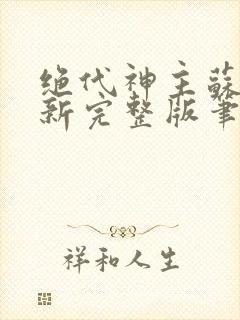 绝代神主蘇
新完整版筆
祥和人生